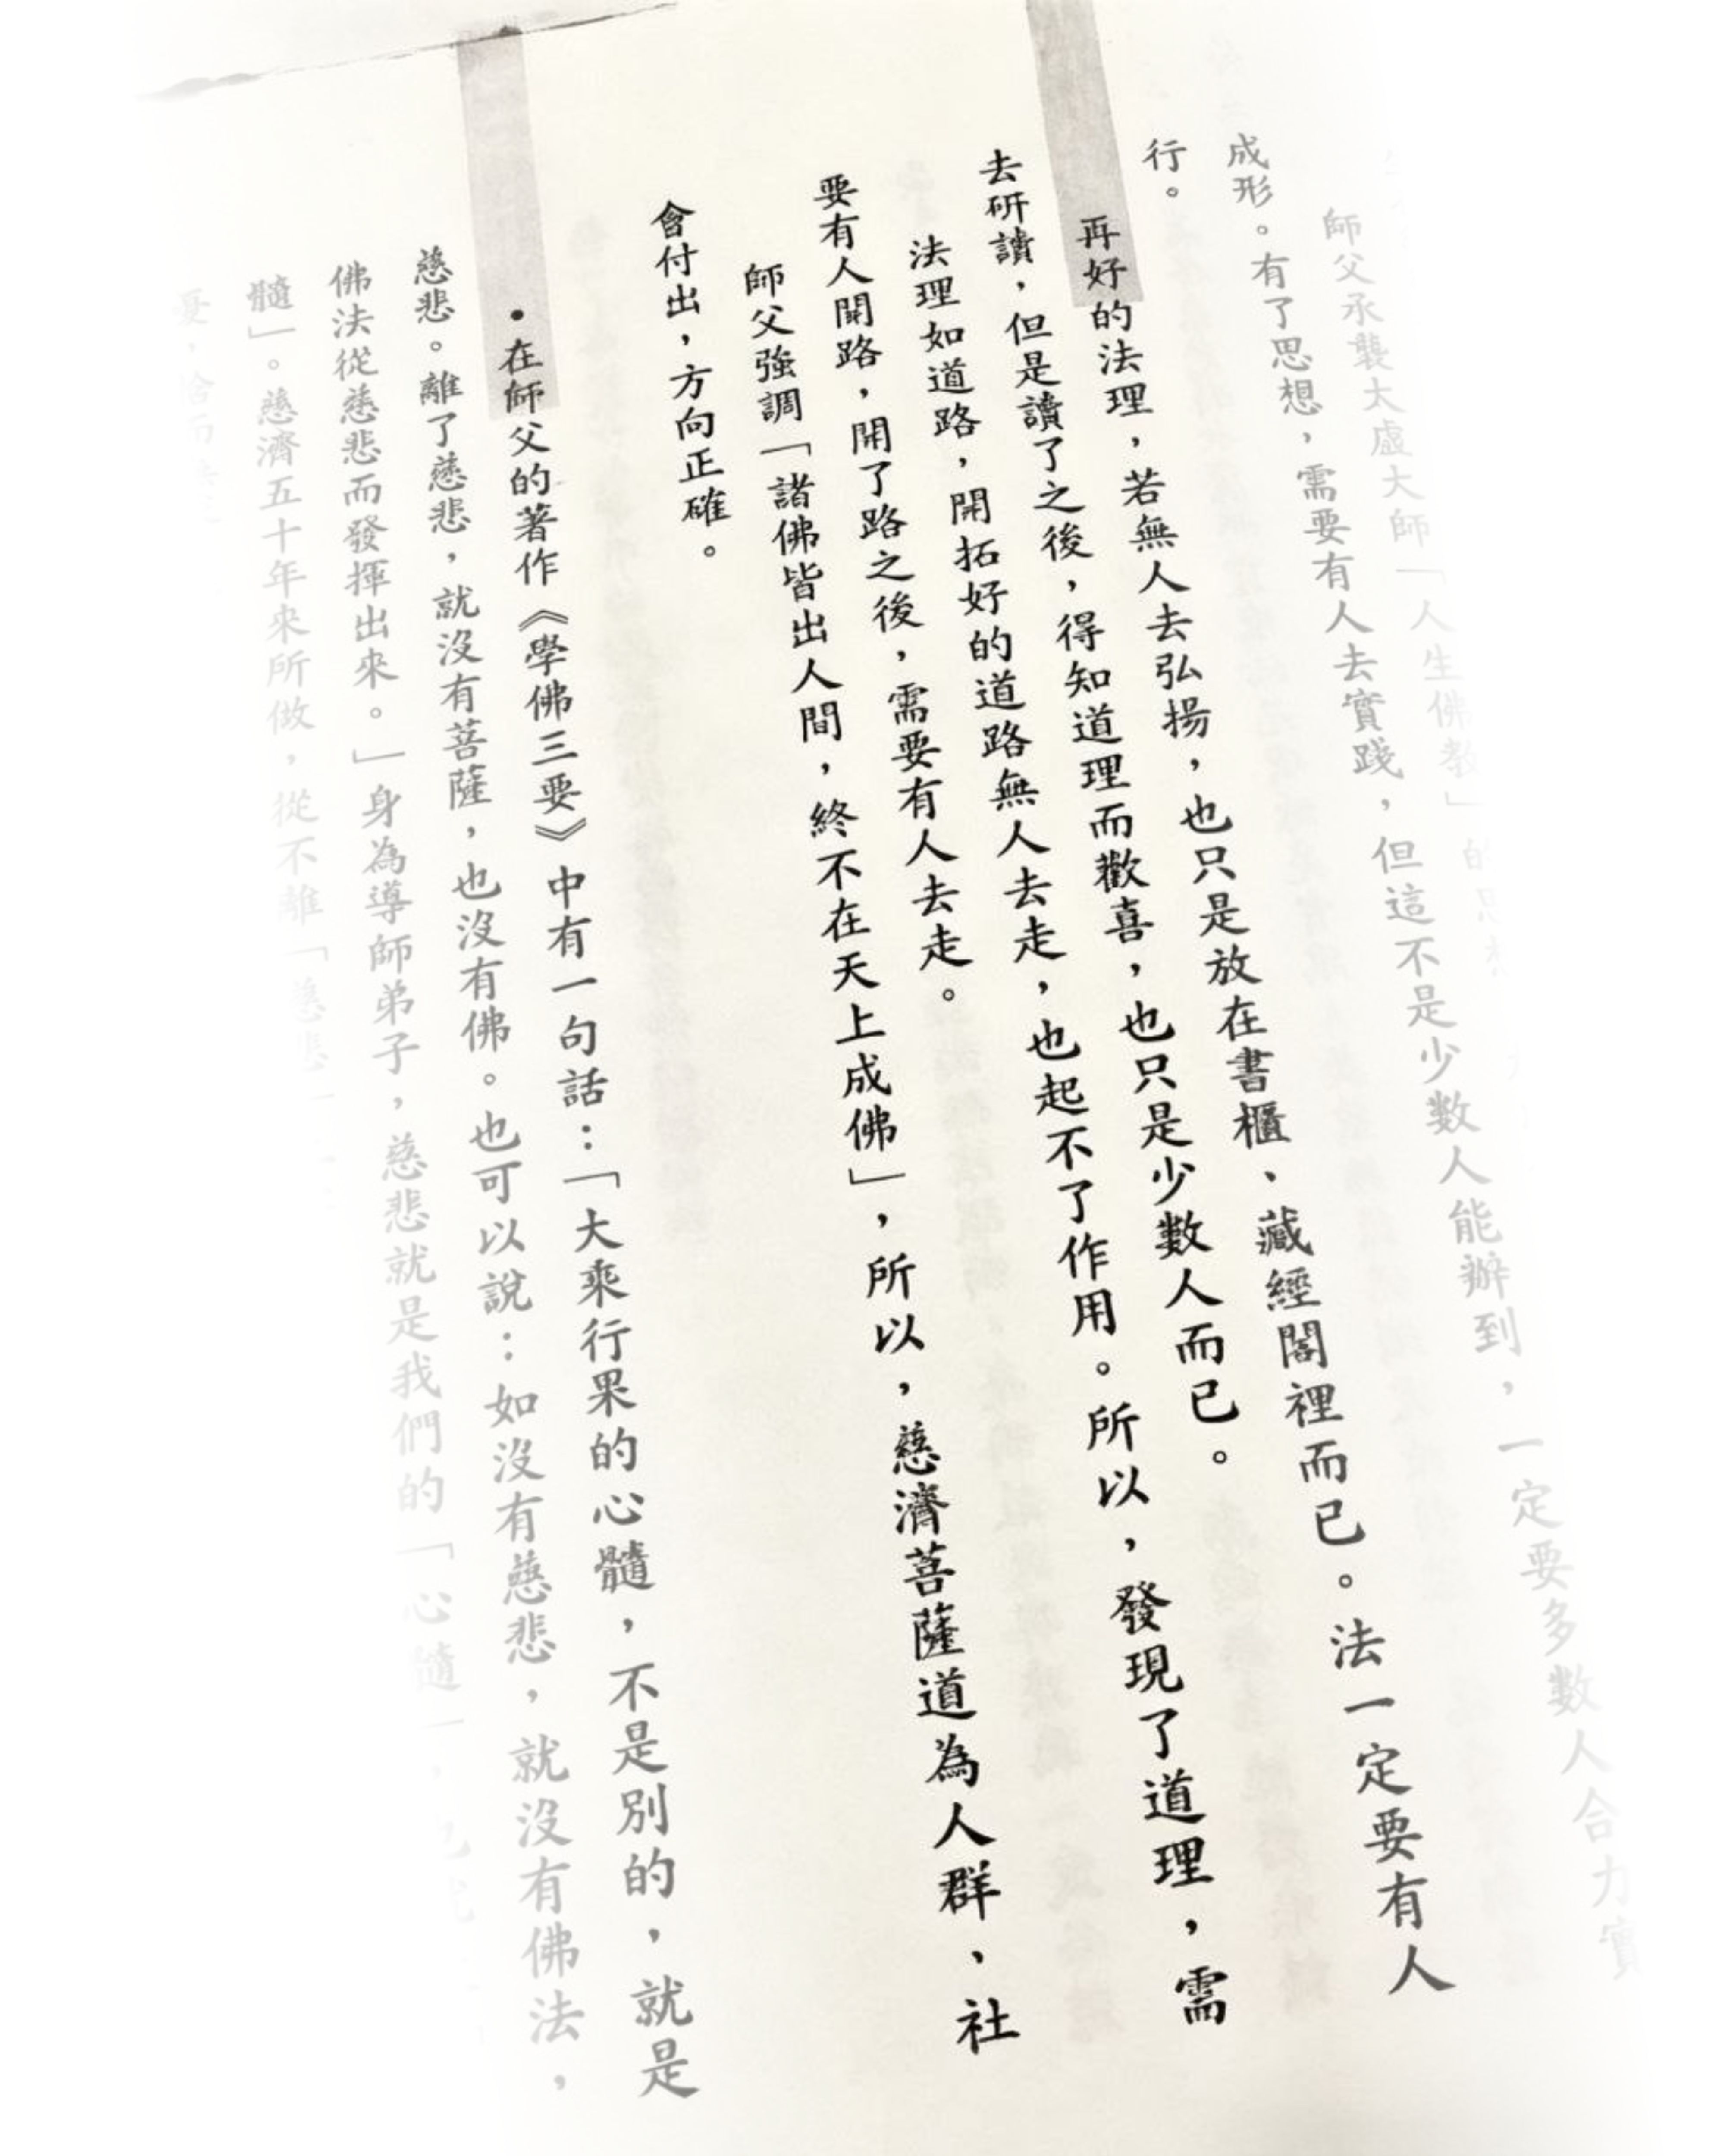 師父承襲大虛大師「人生佛教」的思
成形。有了思想,需要有人去實踐,但這不是少數人能辦到,一定要多數人合力實
行。
再好的法理,若無人去弘揚,也只是放在書櫃、藏經閣裡而已。法一定要有人
去研讀,但是讀了之後,得知道理而歡喜,也只是少數人而已。
法理如道路,開拓好的道路無人去走,也起不了作用。所以,發現了道理,需
要有人開路,開了路之後,需要有人去走。
師父強調「諸佛皆出人間,終不在天上成佛」,所以,慈濟菩薩道為人群、社
會付出,方向正確。
•在師父的著作《學佛三要》中有一句話:「大乘行果的心髓,不是別的,就是
慈悲。離了慈悲,就沒有菩薩,也沒有佛。也可以說:如沒有慈悲,就沒有佛法,
佛法從慈悲而發揮出來。」身為導師弟子,慈悲就是我們的「心髓」,也
髓」。慈濟五十年來所做,從不離「慈悲」